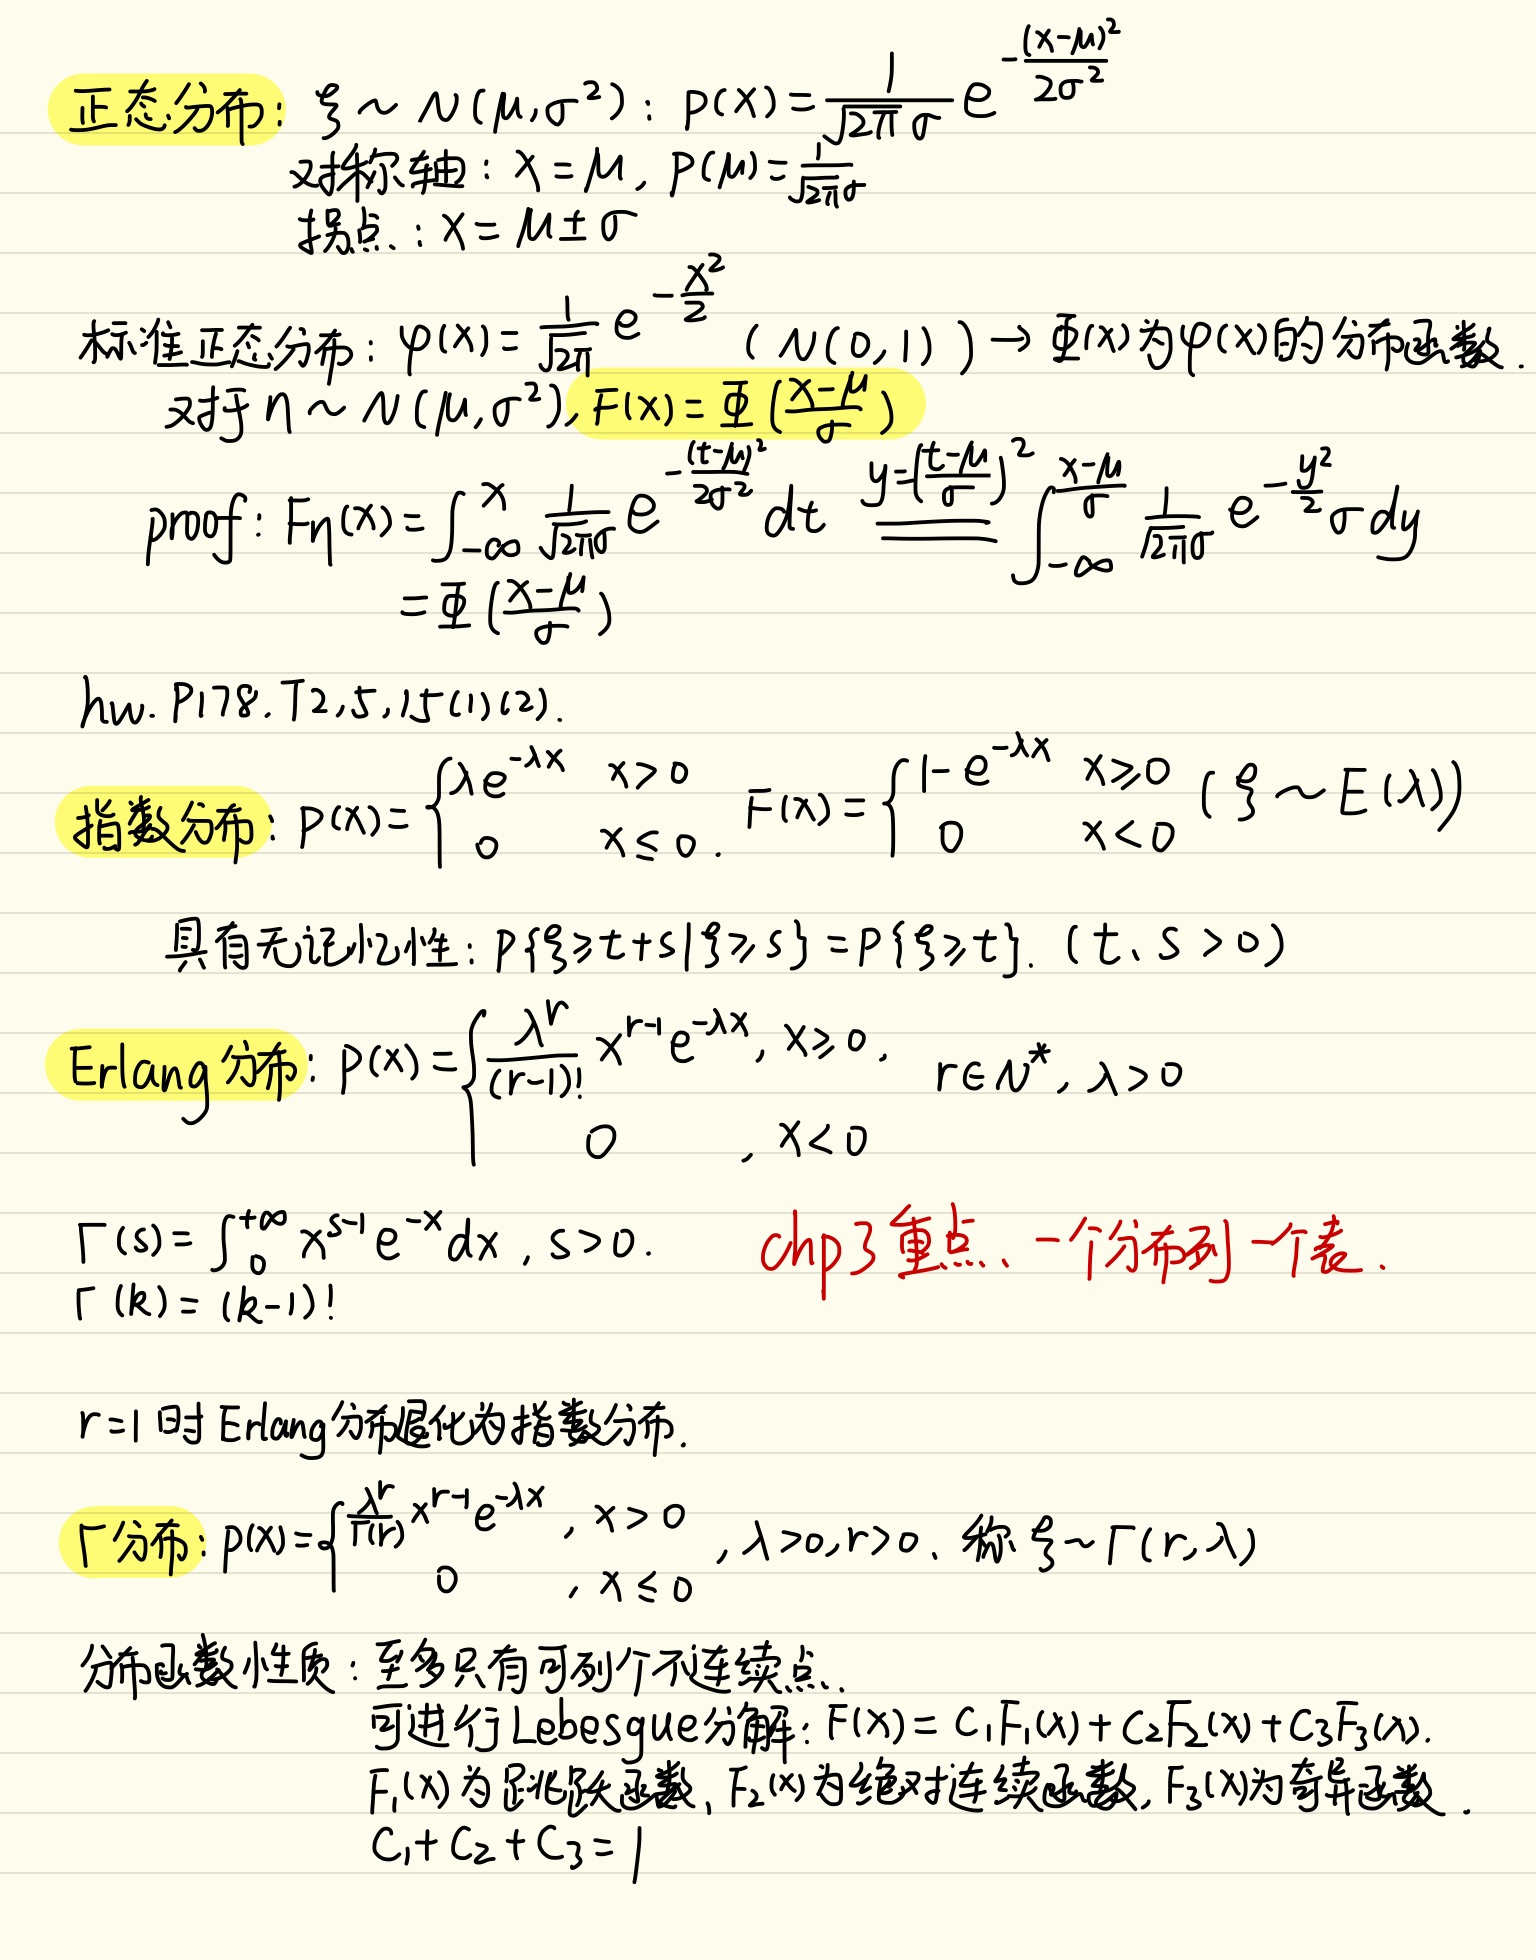 正态分布: ξ ~ N(μ,σ²): p(x) = \frac{1}{\sqrt{2π}σ} e^{-\frac{(x-μ)²}{2σ²}}
对称轴: x = μ, p(μ) = \frac{1}{\sqrt{2π}σ}
拐点.: x = μ ± σ
标准正态分布: φ(x) = \frac{1}{\sqrt{2π}} e^{-\frac{x²}{2}} (N(0,1)) → Φ(x)为φ(x)的分布函数.
对于 η ~ N(μ,σ²), F(x) = Φ(\frac{x-μ}{σ})
proof: Fη(x) = ∫_{-∞}^{x} \frac{1}{\sqrt{2π}σ} e^{-\frac{(t-μ)²}{2σ²}} dt \xlongequal{y=(\frac{t-μ}{σ})²} ∫_{-∞}^{\frac{x-μ}{σ}} \frac{1}{\sqrt{2π}σ} e^{-\frac{y²}{2}} σ dy
= Φ(\frac{x-μ}{σ})
hw. P178. T2,5,15(1)(2).
指数分布: p(x) = { λe^{-λx} x>0
0 x≤0. F(x) = { 1-e^{-λx} x≥0
0 x<0 (ξ ~ E(λ))
具有无记忆性: P{ξ≥t+s|ξ≥s} = P{ξ≥t}. (t、s>0)
Erlang分布: p(x) = { \frac{λ^r}{(r-1)!} x^{r-1} e^{-λx}, x≥0,
0, x<0 r∈N*, λ>0
Γ(s) = ∫_0^{+∞} x^{s-1} e^{-x} dx, s>0.
chp3重点、一个分布列一个表.
Γ(k) = (k-1)!
r=1时Erlang分布退化为指数分布.
Γ分布: p(x) = { \frac{λ^r}{Γ(r)} x^{r-1} e^{-λx}, x>0
0, x≤0 , λ>0, r>0. 称ξ~Γ(r,λ)
分布函数性质: 至多只有可列个不连续点.
可进行Lebesgue分解: F(x) = C₁F₁(x) + C₂F₂(x) + C₃F₃(x).
F₁(x)为跳跃函数, F₂(x)为绝对连续函数, F₃(x)为奇异函数.
C₁ + C₂ + C₃ = 1